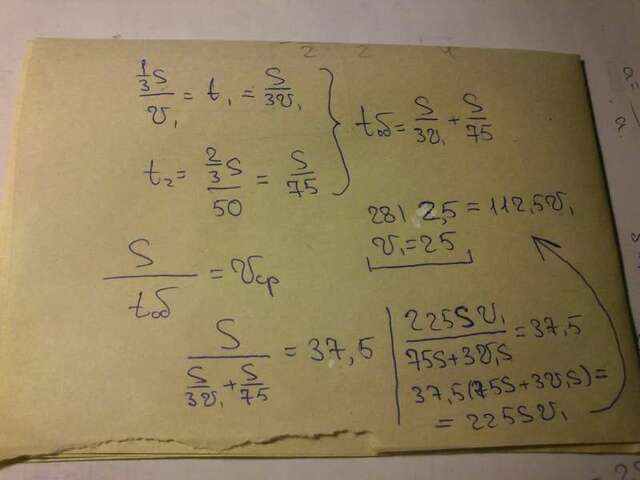 (1/3 S)/v₁ = t₁ = S/(3v₁)
t₂ = (2/3 S)/50 = S/75
tоб = S/(3v₁) + S/75
281 2,5 = 112,5v₁
v₁ = 25
S/tоб = vср
S/(S/(3v₁) + S/75) = 37,5
225Sv₁/(75S+3v₁S) = 37,5
37,5(75S+3v₁S) =
= 225Sv₁